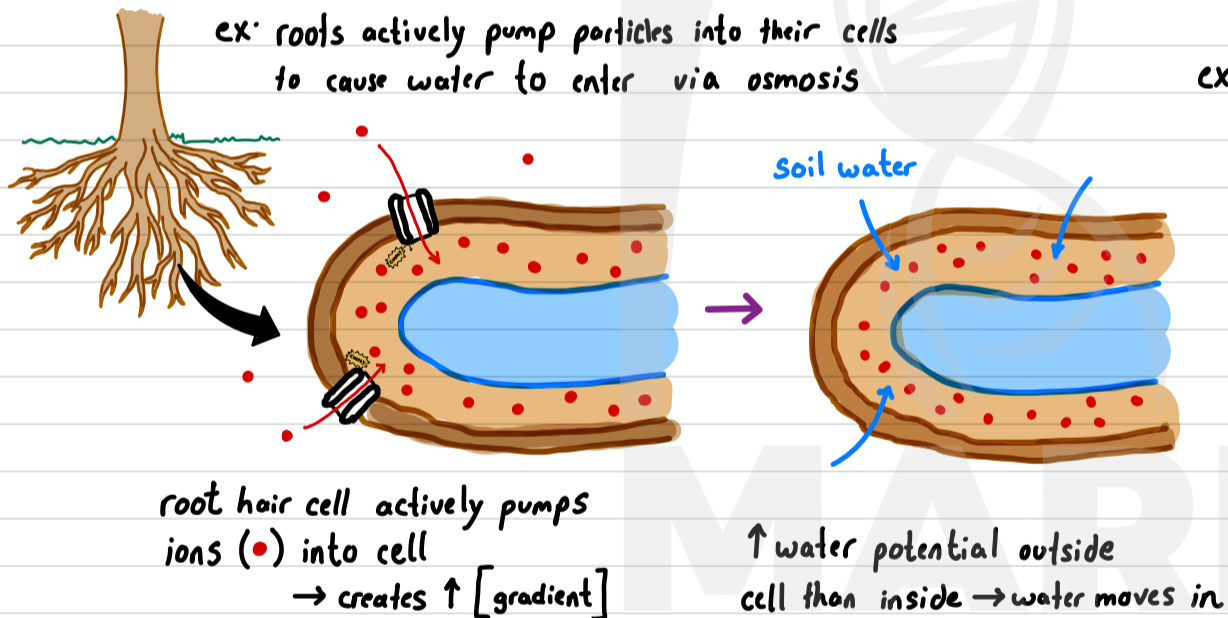 ex: roots actively pump particles into their cells
to cause water to enter via osmosis
ex
soil water
root hair cell actively pumps
ions (•) into cell
→ creates ↑ [gradient]
↑ water potential outside
cell than inside → water moves in
MARI